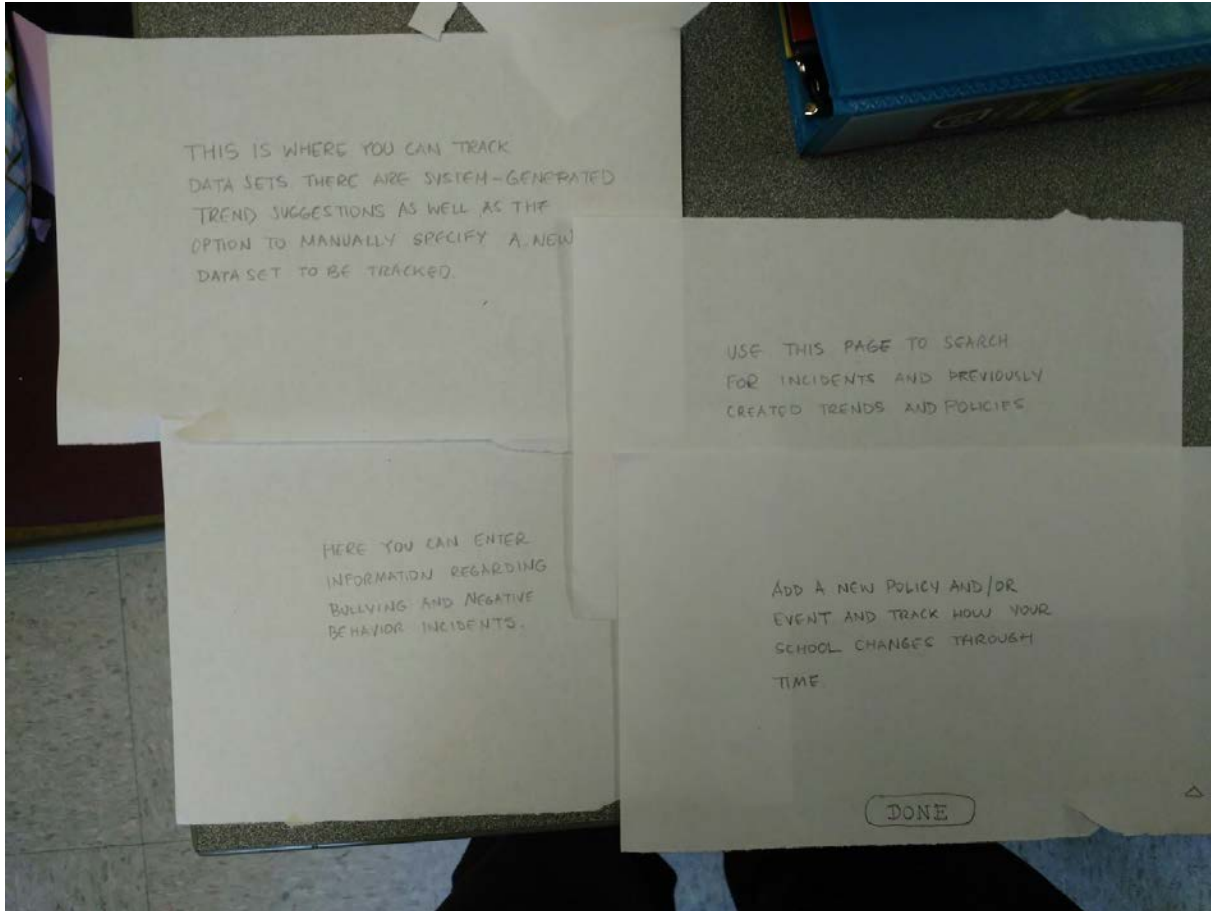 THIS IS WHERE YOU CAN TRACK
DATA SETS. THERE ARE SYSTEM-GENERATED
TREND SUGGESTIONS AS WELL AS THE
OPTION TO MANUALLY SPECIFY A NEW
DATA SET TO BE TRACKED.
USE THIS PAGE TO SEARCH
FOR INCIDENTS AND PREVIOUSLY
CREATED TRENDS AND POLICIES
HERE YOU CAN ENTER
INFORMATION REGARDING
BULLYING AND NEGATIVE
BEHAVIOR INCIDENTS.
ADD A NEW POLICY AND/OR
EVENT AND TRACK HOW YOUR
SCHOOL CHANGES THROUGH
TIME.
DONE